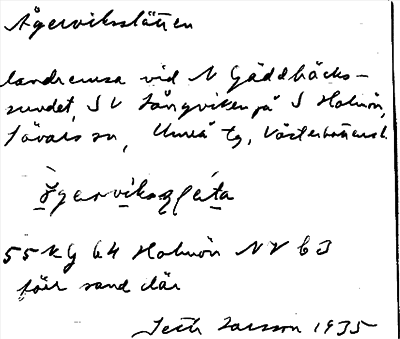 Ågerviksslätten
landremsa vid N Gäddbäcks-
sundet, SV Långviken på S Holmön,
Sävars sn, Umeå tg, Västerbottens l.
55 KG 64 Holmön NV 63
sand där
Seth Larsson 1935